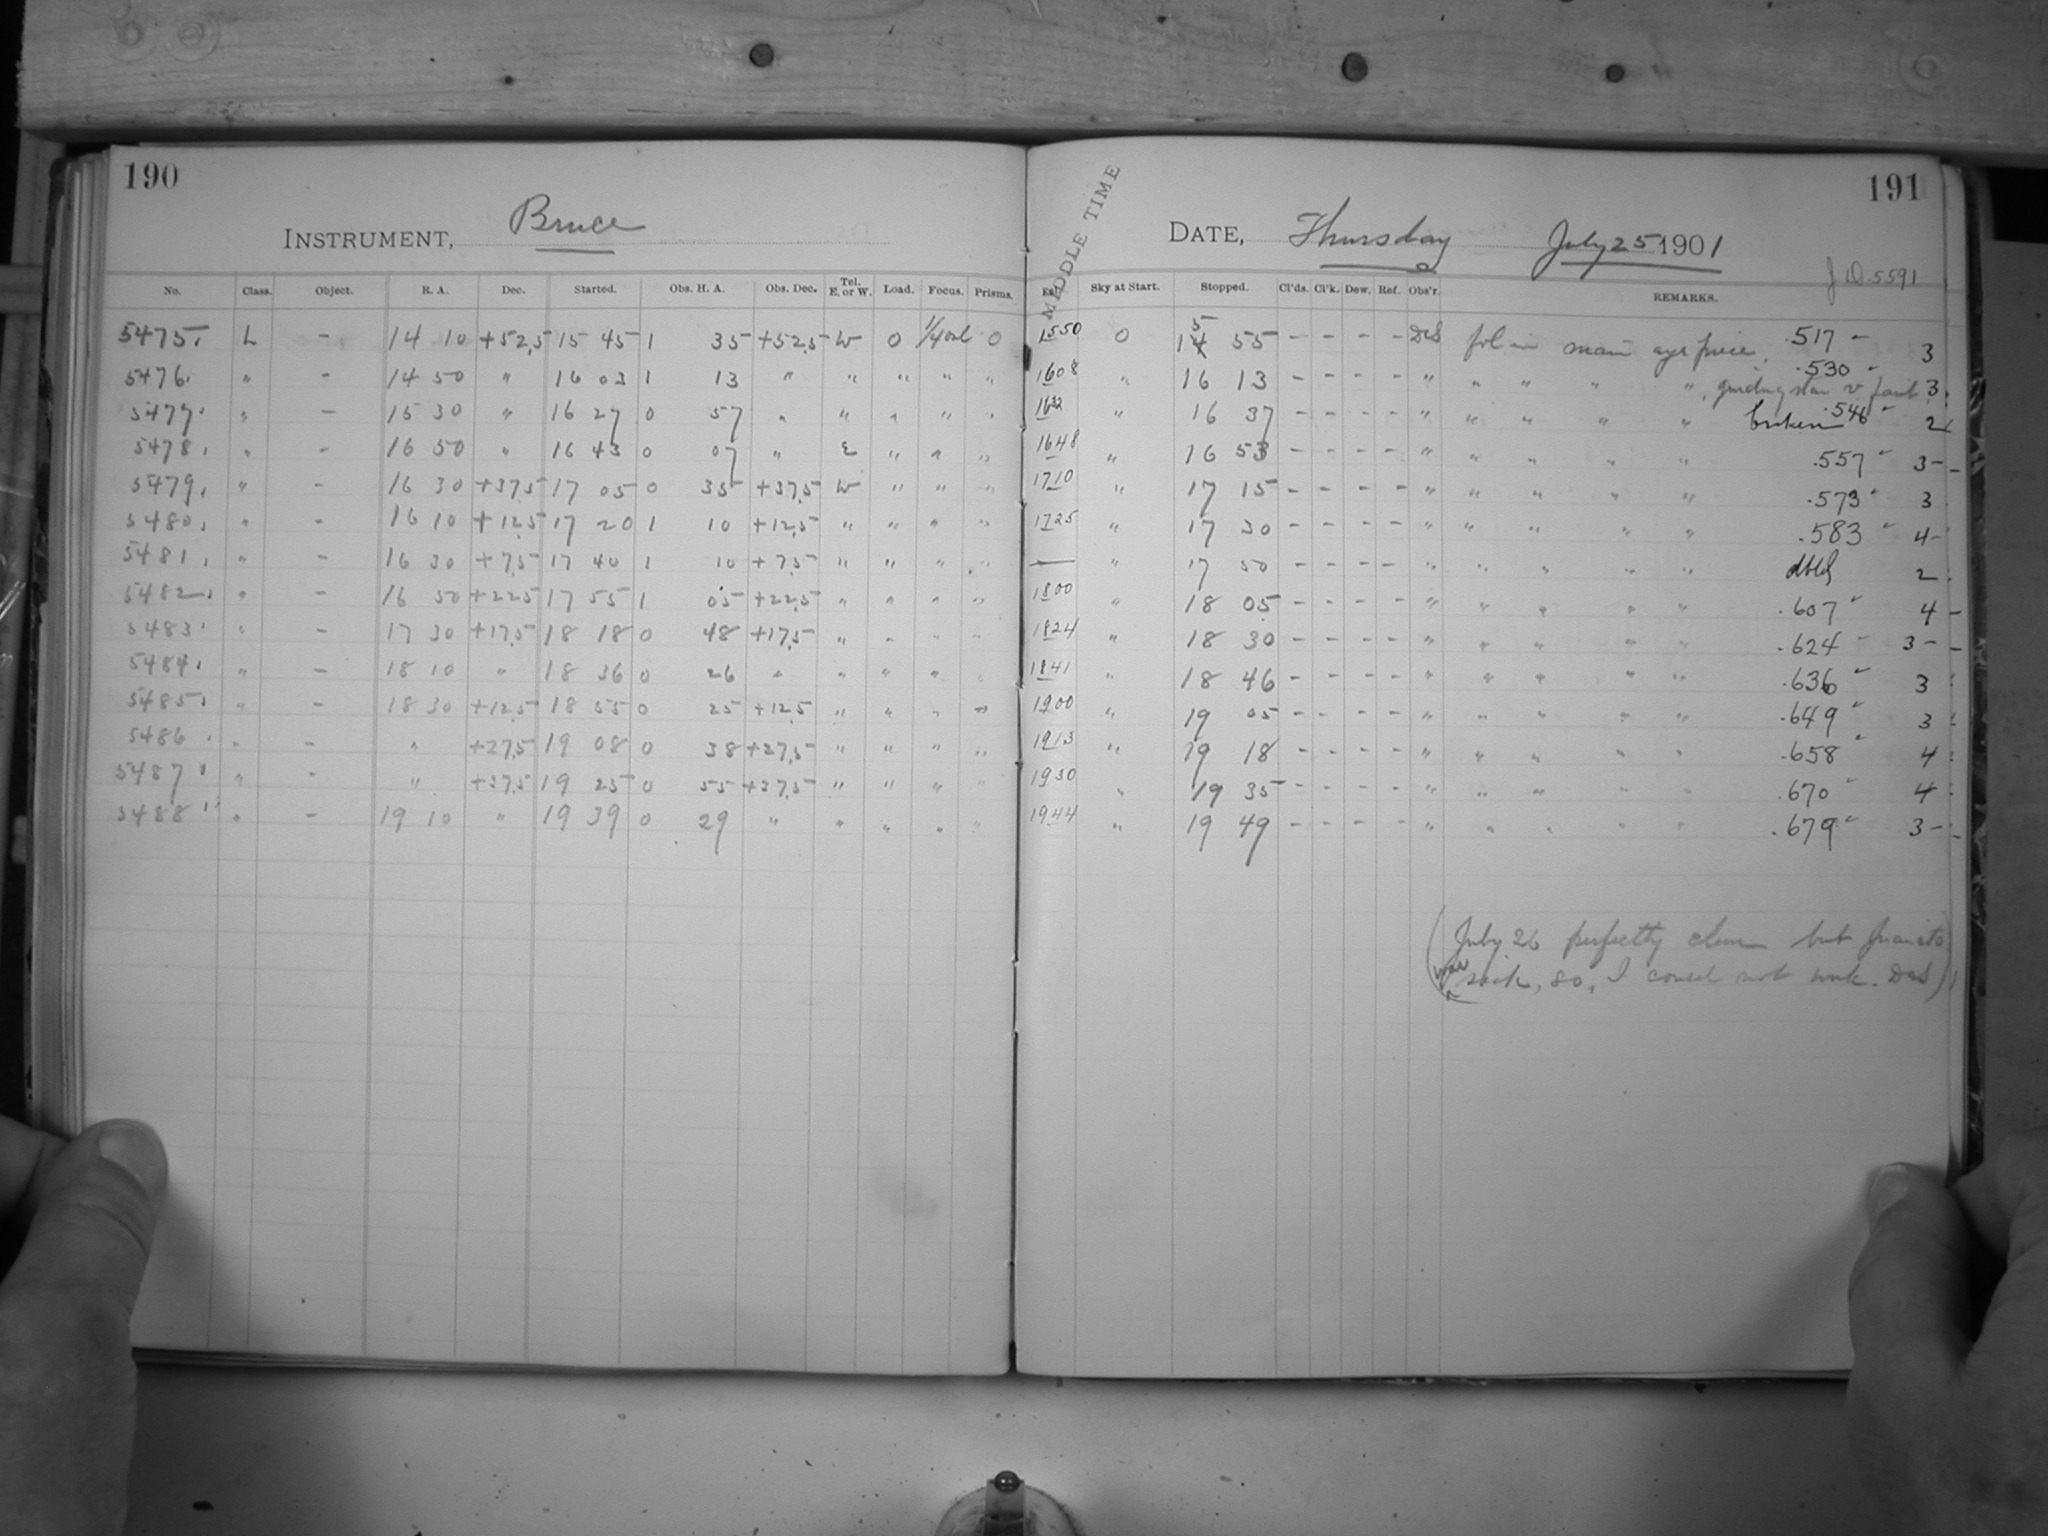 190
191
INSTRUMENT, Bruce
MIDDLE TIME
DATE, Thursday July 25 1901
J D 5591
No. Class. Object. R. A. Dec. Started. Obs. H. A. Obs. Dec. Tel. E. or W. Load. Focus. Prisms. Sky at Start. Stopped. Cl'ds. Cl'k. Dew. Ref. Obs'r. REMARKS.
5475. L - 14 10 +52.5 15 45 1 35 +52.5 W 0 0 1550 0 15 55 - - - - DeS fol in main eye piece. .517 3
5476. " - 14 50 " 16 03 1 13 " " " " " 1608 " 16 13 - - - - " " " " " , guiding star v faint .530 3
5477. " - 15 30 " 16 27 0 57 " " " " " 1632 " 16 37 - - - - " " " " " broken .546 2
5478. " - 16 50 " 16 43 0 07 " E " " " 1648 " 16 53 - - - - " " " " " .557 3-
5479. " - 16 30 +37.5 17 05 0 35 +37.5 W " " " 1710 " 17 15 - - - - " " " " " .573 3
5480. " - 16 10 +12.5 17 20 1 10 +12.5 " " " " 1725 " 17 30 - - - - " " " " " .583 4-
5481. " - 16 30 +7.5 17 40 1 10 +7.5 " " " " — " 17 50 - - - - " " " " " dbld 2
5482. " - 16 50 +22.5 17 55 1 05 +22.5 " " " " 1800 " 18 05 - - - - " " " " " .607 4
5483. " - 17 30 +17.5 18 18 0 48 +17.5 " " " " 1824 " 18 30 - - - - " " " " " .624 3-
5484. " - 18 10 " 18 36 0 26 " " " " " 1841 " 18 46 - - - - " " " " " .636 3
5485. " - 18 30 +12.5 18 55 0 25 +12.5 " " " " 1900 " 19 05 - - - - " " " " " .649 3
5486. " - " +27.5 19 08 0 38 +27.5 " " " " 1913 " 19 18 - - - - " " " " " .658 4
5487. " - " +37.5 19 25 0 55 +37.5 " " " " 1930 " 19 35 - - - - " " " " " .670 4
5488. " - 19 10 " 19 39 0 29 " " " " " 1944 " 19 49 - - - - " " " " " .679 3-
(July 26 perfectly clear but Juanito
was sick, so, I could not work. DeS)